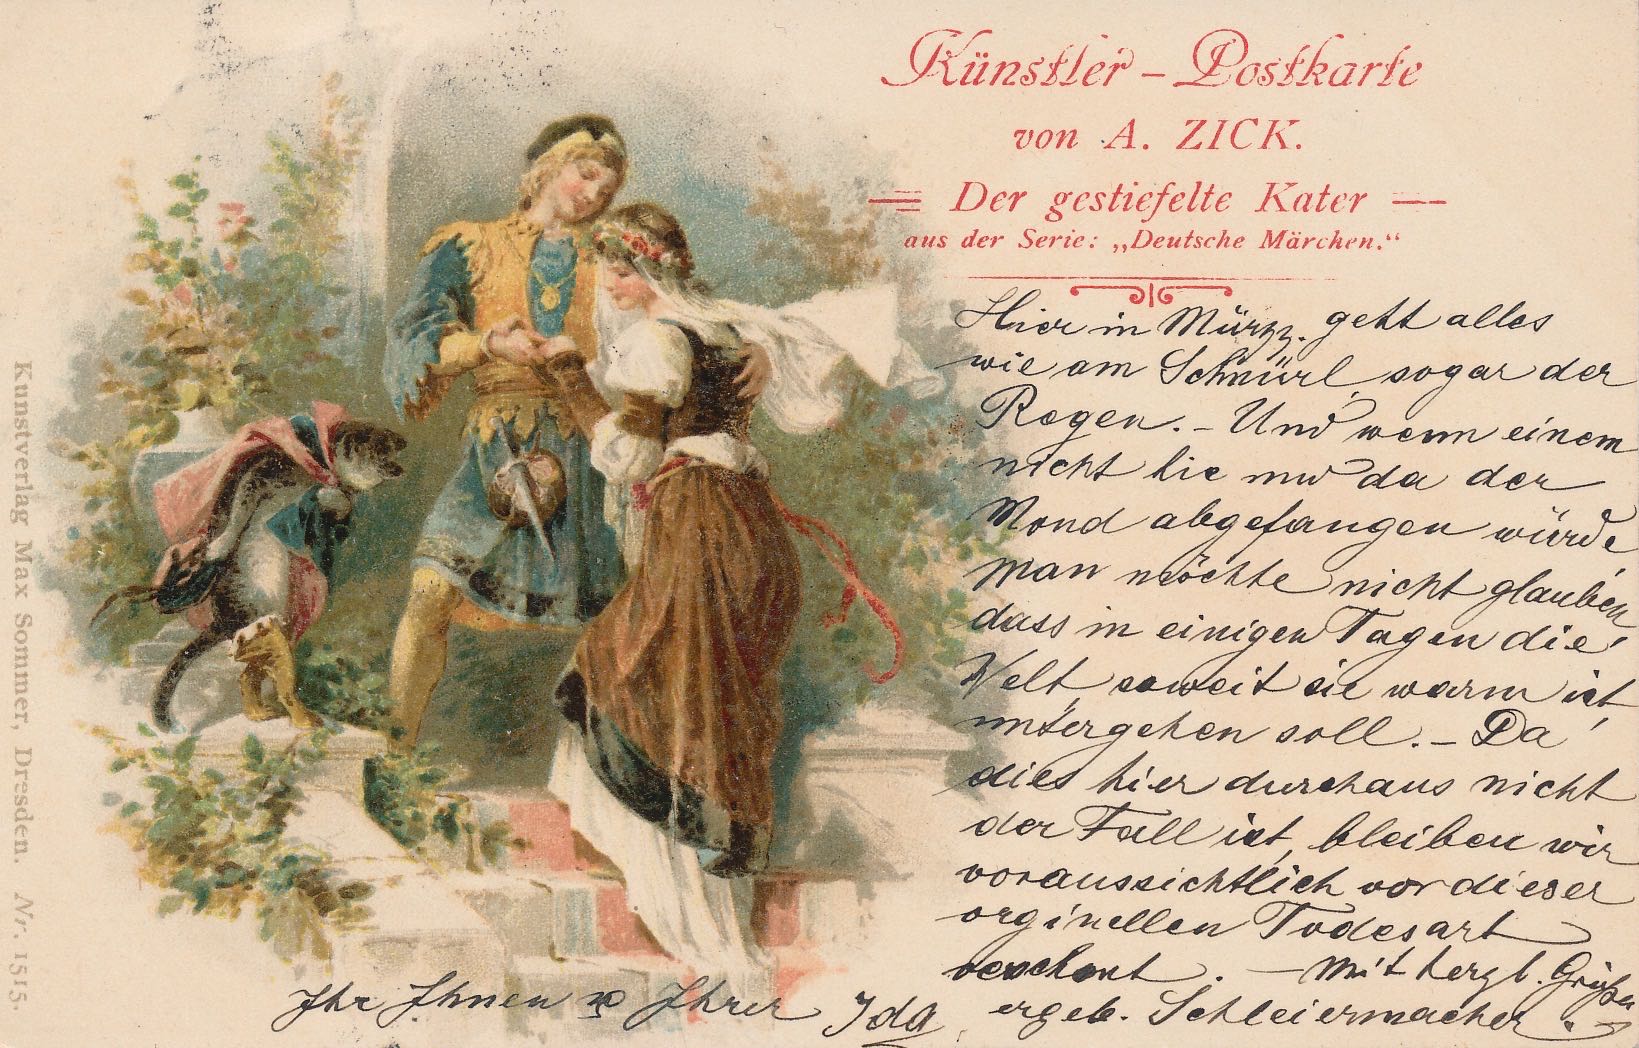 Künstler – Postkarte
von A. ZICK.
Der gestiefelte Kater
aus der Serie: „Deutsche Märchen.“
Hier in Mürzz. geht alles
wie am Schnürl, sogar der
Regen. – Und wenn einem
nicht hie und da der
Mond abgefangen würde
man möchte nicht glauben,
dass in einigen Tagen die
Welt, soweit sie warm ist,
untergehen soll. – Da
dies hier durchaus nicht
der Fall ist, bleiben wir
voraussichtlich vor dieser
orginellen Todesart
verschont. – Mit herzl. Grüßen
Ihr Ihnen u Ihrer Ida ergeb. Schleiermacher.
Kunstverlag Max Sommer, Dresden. Nr. 1515.